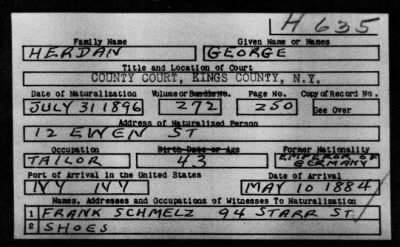 H 635
Family Name Given Name or Names
HERDAN GEORGE
Title and Location of Court
COUNTY COURT, KINGS COUNTY, N.Y.
Date of Naturalization Volume or Bundle No. Page No. Copy of Record No.
JULY 31 1896 272 250 See Over
Address of Naturalized Person
12 EWEN ST
Occupation Birth Date or Age Former Nationality
TAILOR 43 EMPEROR OF GERMANY
Port of Arrival in the United States Date of Arrival
NY NY MAY 10 1884
Names, Addresses and Occupations of Witnesses To Naturalization
1 FRANK SCHMELZ 94 STARR ST
2 SHOES